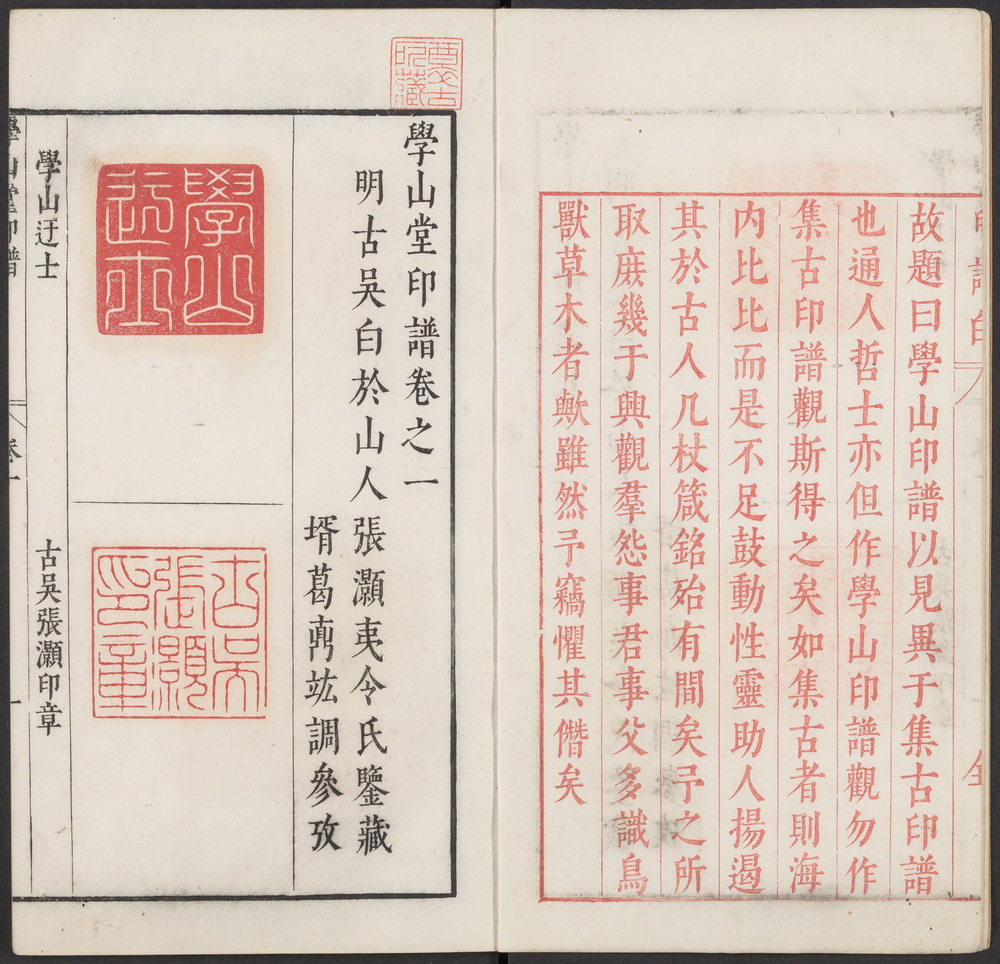 故題曰學山印譜以見異于集古印譜
也通人哲士亦但作學山印譜觀勿作
集古印譜觀斯得之矣如集古者則海
内比比而是不足鼓動性靈助人揚遏
其於古人几杖箴銘殆有間矣予之所
取庶幾于興觀羣怨事君事父多識鳥
獸草木者歟雖然予竊懼其僭矣
學山堂印譜卷之一
明古吳白於山人張灝夷令氏鑒藏
壻葛鼐竑調參攷
學山迂士
古吳張灝印章
學山迂士
古吳張灝印章
學山堂印譜
卷一
一